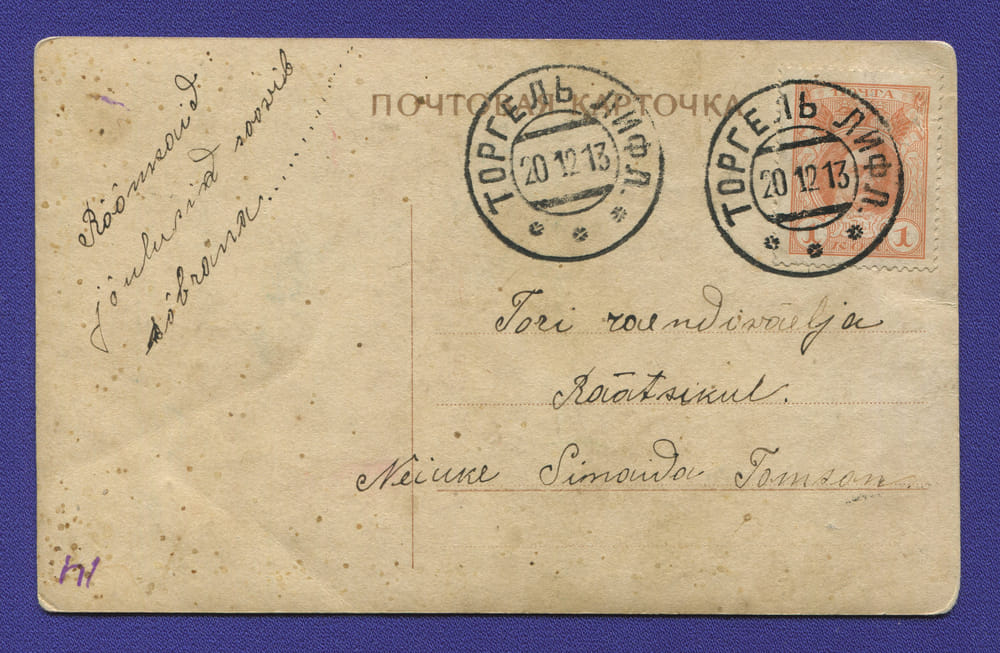 ПОЧТОВАЯ КАРТОЧКА
ТОРГЕЛЬ ЛИФЛ.
20 12 13
ТОРГЕЛЬ ЛИФЛ.
20 12 13
ПОЧТА
1 1
Rõõmsaid
jõulusid soovib
sõbrana..........
Tori
Räätsikul.
Neiuke Sinaida Tomson
14